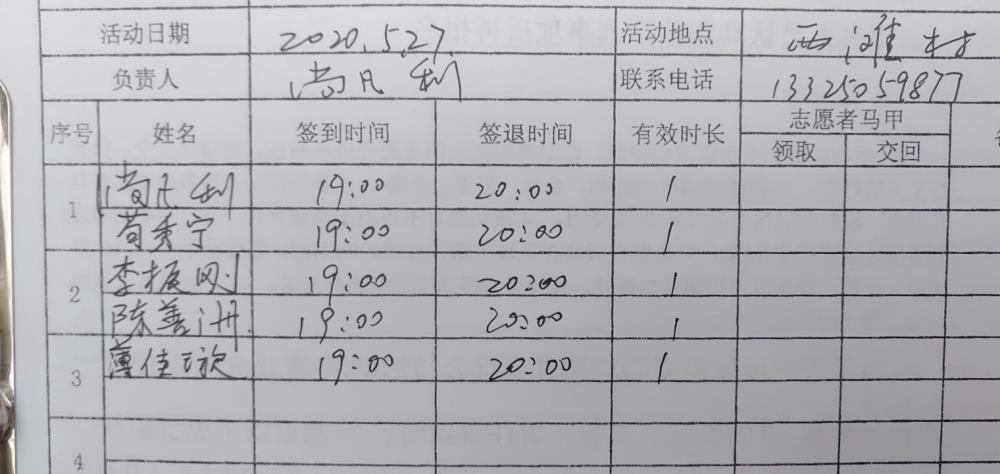 活动日期 2020.5.27. 活动地点 西滩村
负责人 尚凡利 联系电话 13325059877
序号 姓名 签到时间 签退时间 有效时长 志愿者马甲
领取 交回
1 尚凡利 19:00 20:00 1
苟秀宁 19:00 20:00 1
2 李振刚 19:00 20:00 1
陈善洲 19:00 20:00 1
3 薄佳璇 19:00 20:00 1
4